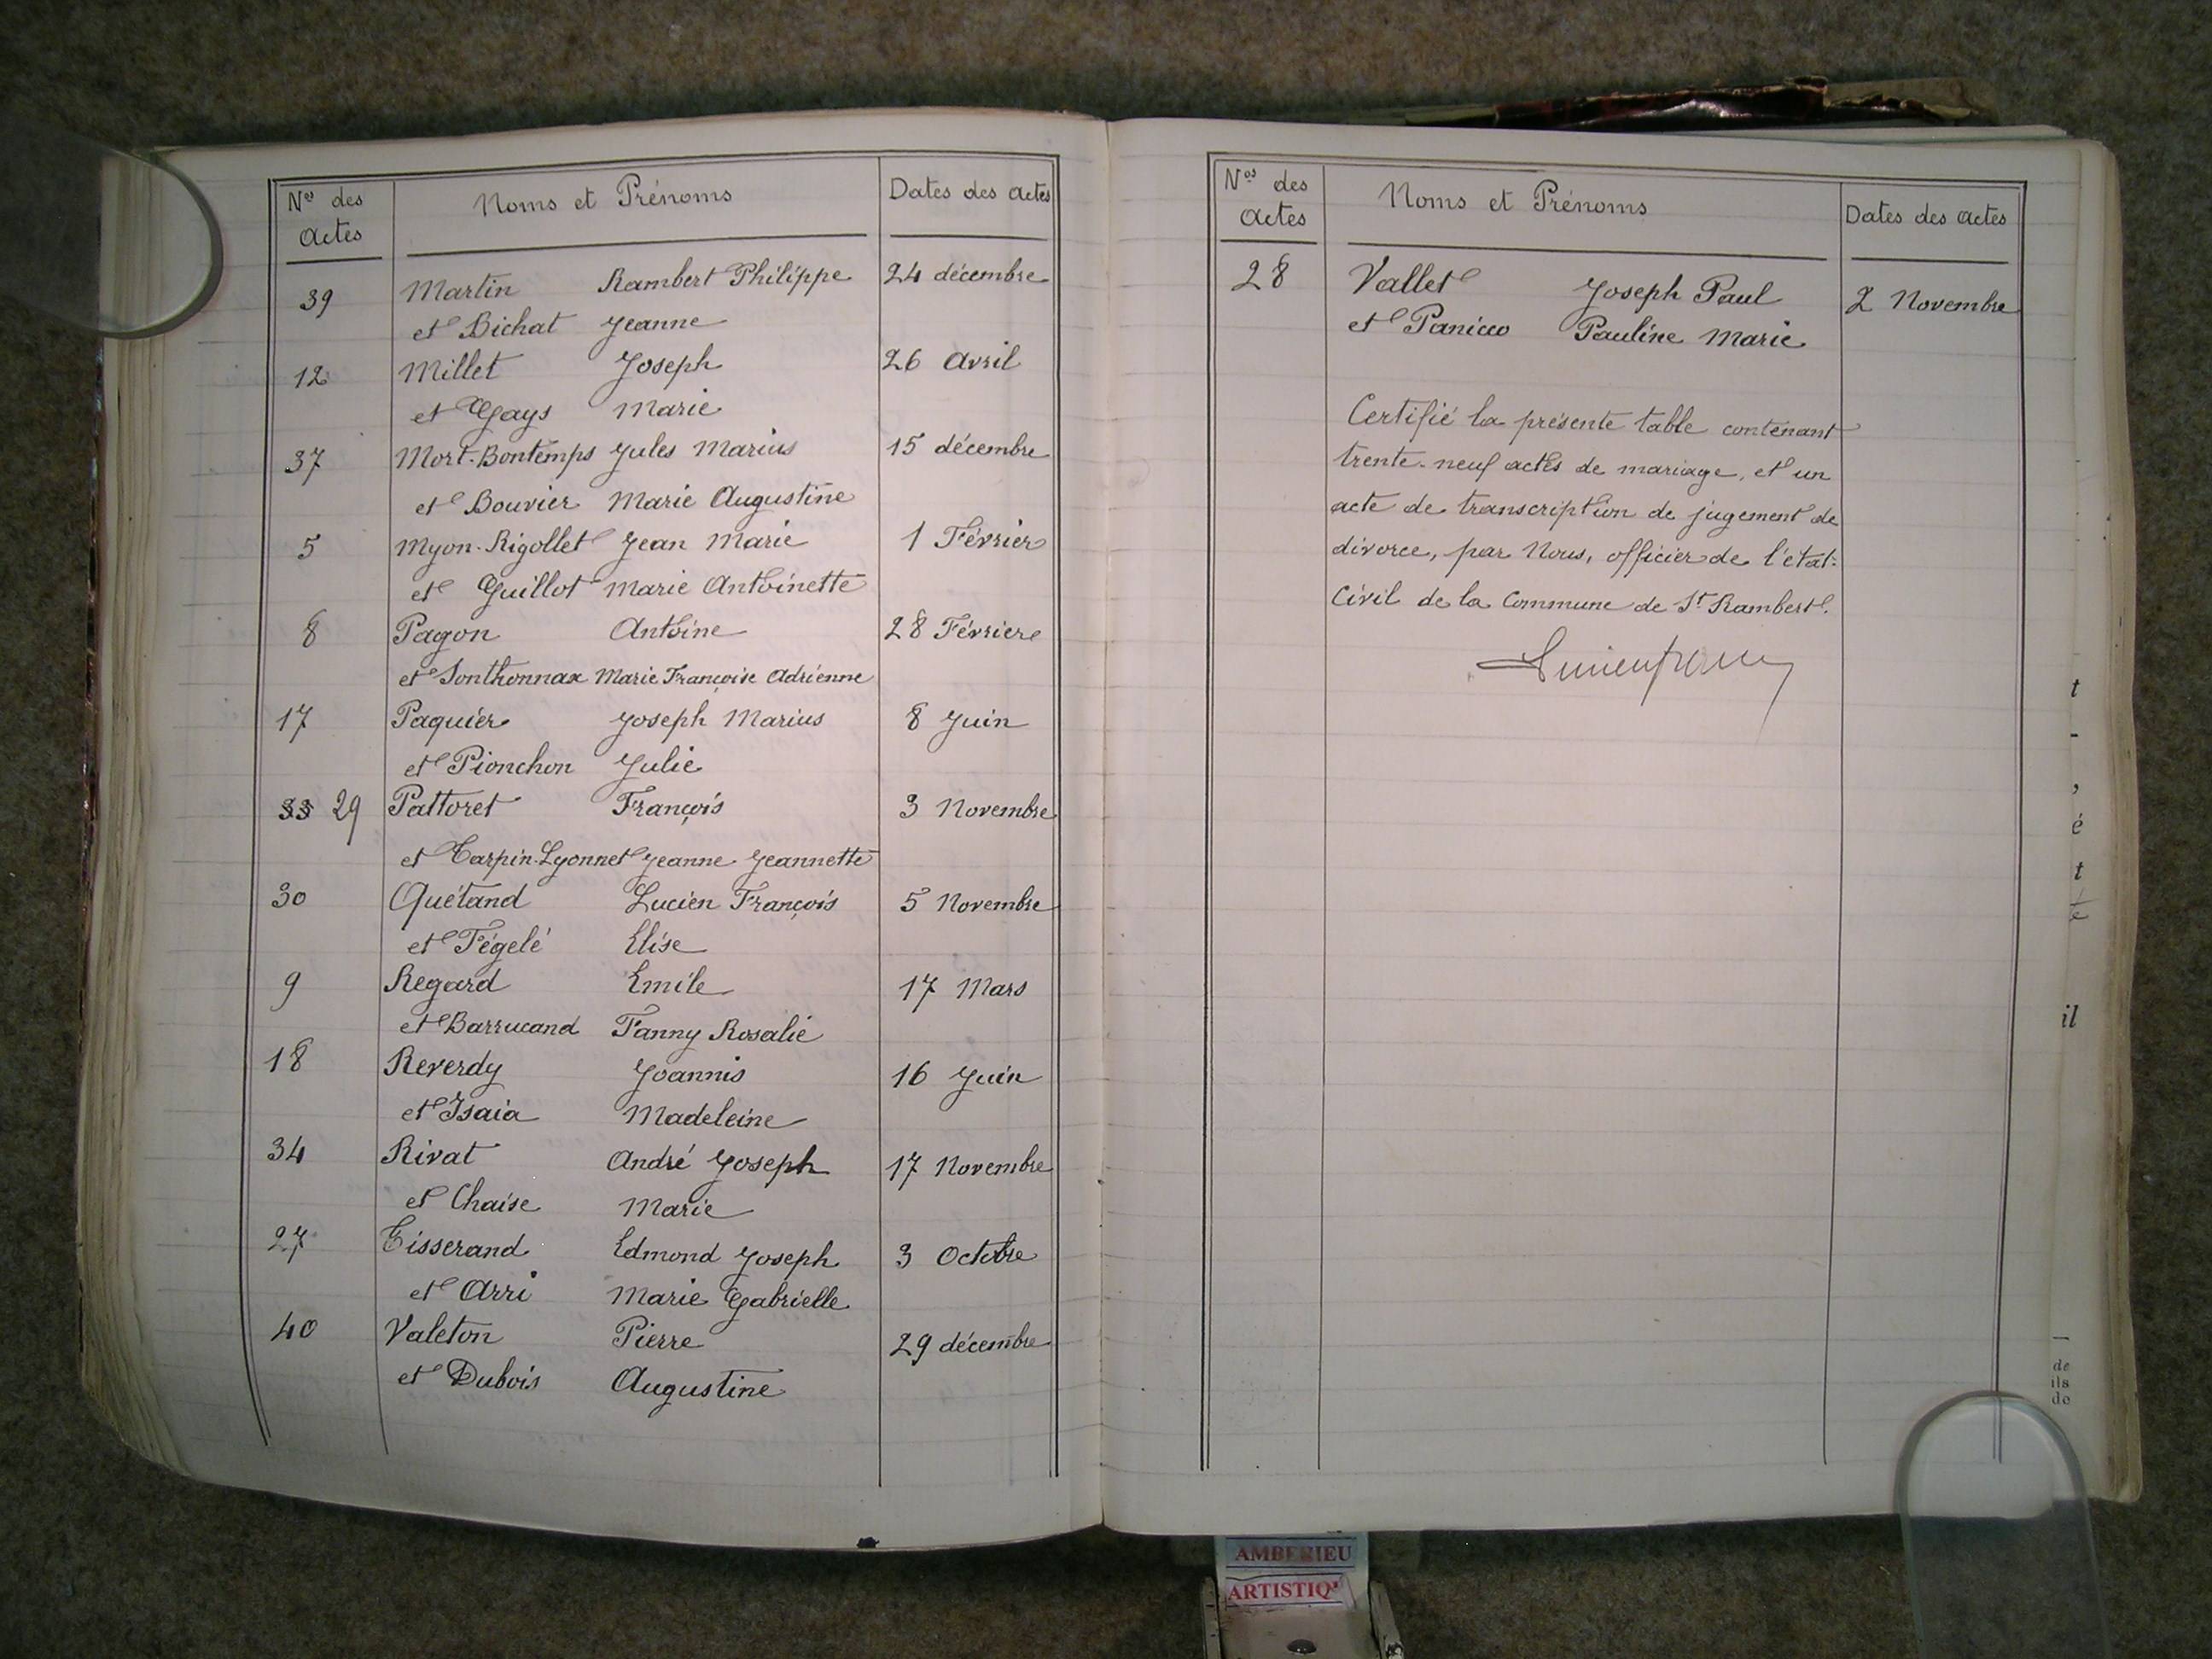 Nos des Actes Noms et Prénoms Dates des actes
39 Martin Rambert Philippe 24 décembre
et Bichat Jeanne
12 Millet Joseph 26 Avril
et Gays Marie
37 Mort-Bontemps Jules Marius 15 décembre
et Bouvier Marie Augustine
5 Myon-Rigollet Jean Marie 1 Février
et Guillot Marie Antoinette
8 Pagon Antoine 28 Février
et Sonthonnax Marie Françoise Adrienne
17 Paquier Joseph Marius 8 Juin
et Pionchon Julie
33 29 Pattoret François 3 Novembre
et Tarpin-Lyonnet Jeanne Jeannette
30 Quétand Lucien François 5 Novembre
et Fégelé Elise
9 Regard Emile 17 Mars
et Barrucand Fanny Rosalie
18 Reverdy Joannis 16 Juin
et Isaia Madeleine
34 Rivat André Joseph 17 Novembre
et Chaise Marie
27 Tisserand Edmond Joseph 3 Octobre
et Arri Marie Gabrielle
40 Valeton Pierre 29 décembre
et Dubois Augustine
Nos des Actes Noms et Prénoms Dates des actes
28 Vallet Joseph Paul 2 Novembre
et Panicco Pauline Marie
Certifié la présente table contenant
trente-neuf actes de mariage, et un
acte de transcription de jugement de
divorce, par Nous, officier de l'état-
Civil de la Commune de St Rambert.
t
-
,
é
t
il
de
ils
do
AMBERIEU
ARTISTIQ'